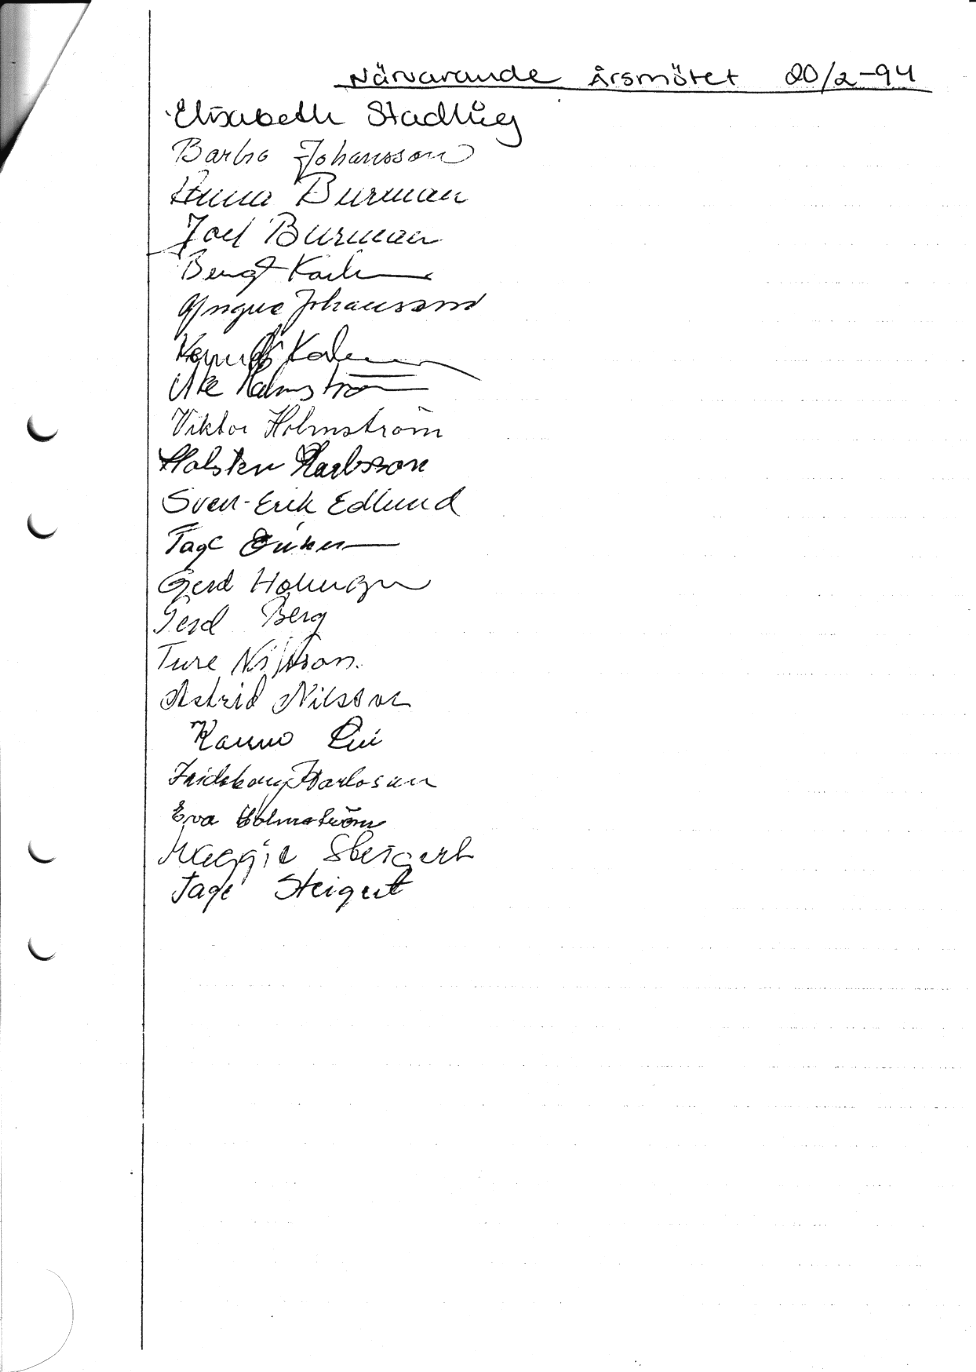 Närvarande Årsmötet 20/2-94
Elisabeth Stadling
Barbro Johansson
Anna Burman
Joel Burman
Bengt
Yngve Johansson
Åke Holmström
Viktor Holmström
Halsten Karlsson
Sven-Erik Edlund
Tage
Gerd Holmgren
Gerd Berg
Ture Nilsson
Astrid Nilsson
Karlsson
Eva Holmström
Maggie Steigert
Tage Steigert